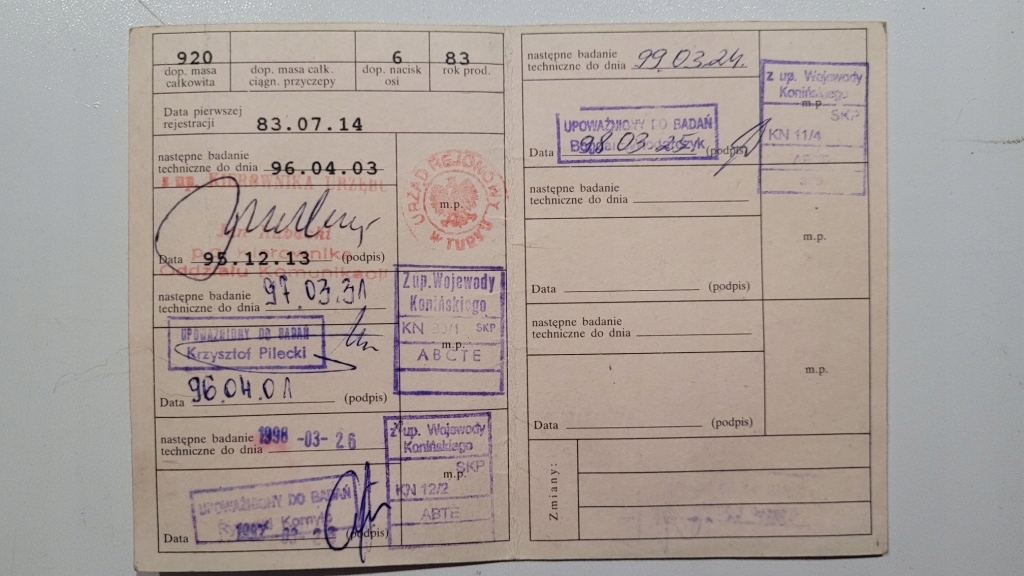 920 6 83
dop. masa całkowita
dop. masa całk. ciągn. przyczepy
dop. nacisk osi
rok prod.
Data pierwszej
rejestracji 83.07.14
następne badanie
techniczne do dnia 96.04.03
z up. KIEROWNIKA URZĘDU
Jan
p.o. Kierownika
Oddziału Komunikacji
Data 95.12.13 (podpis)
m.p.
URZĄD REJONOWY
w Turku
następne badanie
techniczne do dnia 97.03.31
UPOWAŻNIONY DO BADAŃ
Krzysztof Pilecki
Data 96.04.01 (podpis)
Z up. Wojewody
Konińskiego
KN SKP
m.p.
ABCTE
następne badanie
techniczne do dnia 1998-03-26
UPOWAŻNIONY DO BADAŃ
Data 1997 (podpis)
z up. Wojewody
Konińskiego
SKP
m.p.
KN 12/2
ABTE
następne badanie
techniczne do dnia 99.03.24.
UPOWAŻNIONY DO BADAŃ
Data 98.03.25 (podpis)
z up. Wojewody
Konińskiego
m.p.
SKP
KN 11/4
następne badanie
techniczne do dnia
m.p.
Data (podpis)
następne badanie
techniczne do dnia
m.p.
Data (podpis)
Zmiany: